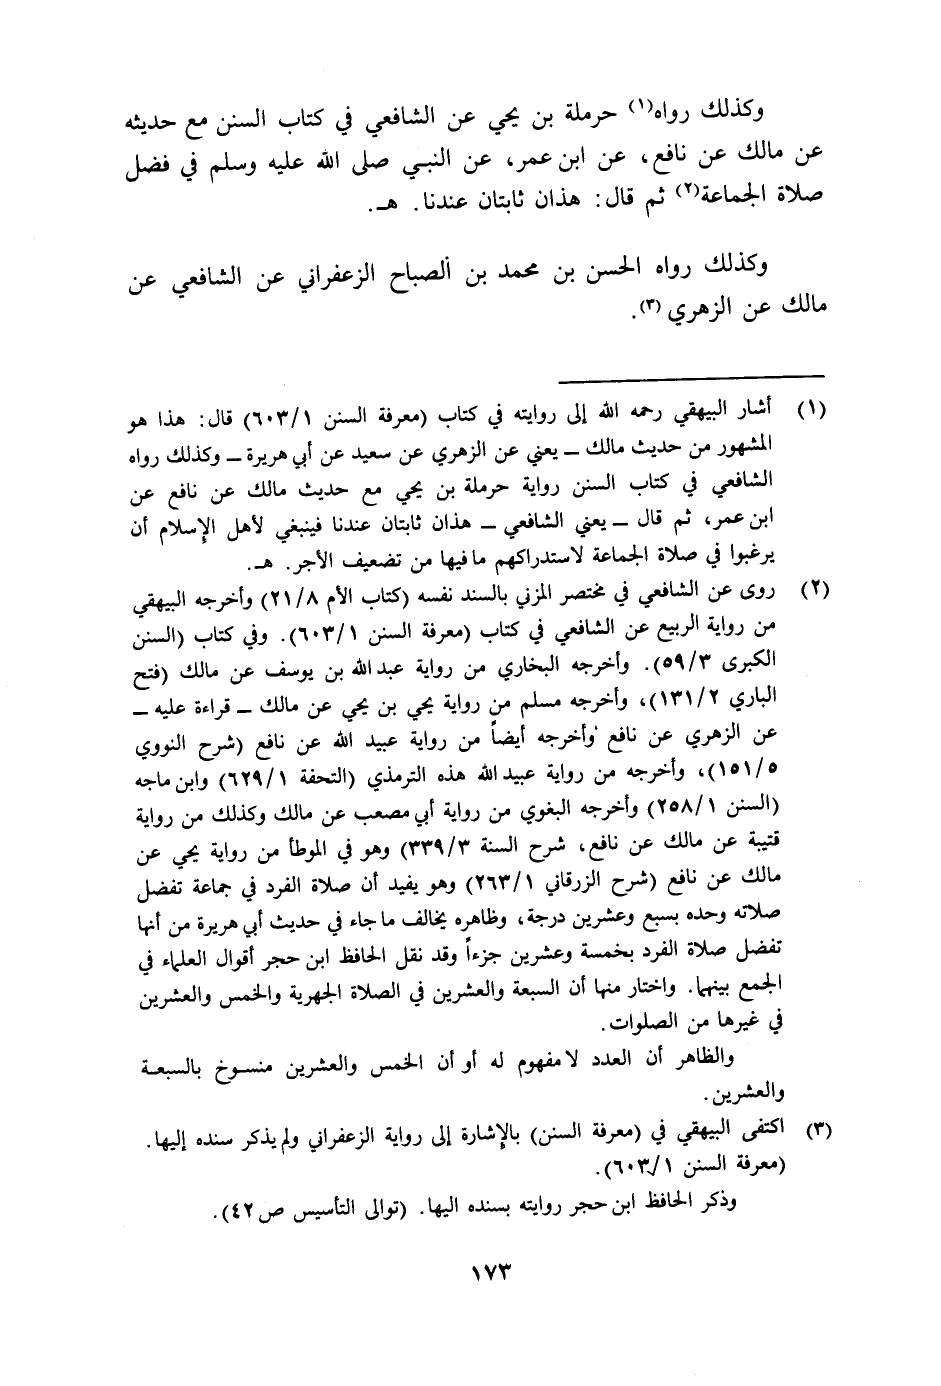 وكذلك رواه(١) حرملة بن يحي عن الشافعي في كتاب السنن مع حديثه
عن مالك عن نافع، عن ابن عمر، عن النبي صلى الله عليه وسلم في فضل
صلاة الجماعة(٢) ثم قال: هذان ثابتان عندنا. هـ.
وكذلك رواه الحسن بن محمد بن الصباح الزعفراني عن الشافعي عن
مالك عن الزهري (٣).
(١) أشار البيهقي رحمه الله إلى روايته في كتاب (معرفة السنن ٦٠٣/١) قال: هذا هو
المشهور من حديث مالك ــ يعني عن الزهري عن سعيد عن أبي هريرة ــ وكذلك رواه
الشافعي في كتاب السنن رواية حرملة بن يحي مع حديث مالك عن نافع عن
ابن عمر، ثم قال ــ يعني الشافعي ــ هذان ثابتان عندنا فينبغي لأهل الإسلام أن
يرغبوا في صلاة الجماعة لاستدراكهم ما فيها من تضعيف الأجر. هـ.
(٢) روى عن الشافعي في مختصر المزني بالسند نفسه (كتاب الأم ٢١/٨) وأخرجه البيهقي
من رواية الربيع عن الشافعي في كتاب (معرفة السنن ٦٠٣/١). وفي كتاب (السنن
الكبرى ٥٩/٣). وأخرجه البخاري من رواية عبد الله بن يوسف عن مالك (فتح
الباري ١٣١/٢)، وأخرجه مسلم من رواية يحي بن يحي عن مالك ــ قراءة عليه ــ
عن الزهري عن نافع وأخرجه أيضاً من رواية عبيد الله عن نافع (شرح النووي
١٥١/٥)، وأخرجه من رواية عبيد الله هذه الترمذي (التحفة ٦٢٩/١) وابن ماجه
(السنن ٢٥٨/١) وأخرجه البغوي من رواية أبي مصعب عن مالك وكذلك من رواية
قتيبة عن مالك عن نافع، شرح السنة ٣٣٩/٣) وهو في الموطأ من رواية يحي عن
مالك عن نافع (شرح الزرقاني ٢٦٣/١) وهو يفيد أن صلاة الفرد في جماعة تفضل
صلاته وحده بسبع وعشرين درجة، وظاهره يخالف ما جاء في حديث أبي هريرة من أنها
تفضل صلاة الفرد بخمسة وعشرين جزءاً وقد نقل الحافظ ابن حجر أقوال العلماء في
الجمع بينهما. واختار منها أن السبعة والعشرين في الصلاة الجهرية والخمس والعشرين
في غيرها من الصلوات.
والظاهر أن العدد لا مفهوم له أو أن الخمس والعشرين منسوخ بالسبعة
والعشرين.
(٣) اكتفى البيهقي في (معرفة السنن) بالإشارة إلى رواية الزعفراني ولم يذكر سنده إليها.
(معرفة السنن ٦٠٣/١).
وذكر الحافظ ابن حجر روايته بسنده اليها. (توالى التأسيس ص ٤٢).
١٧٣